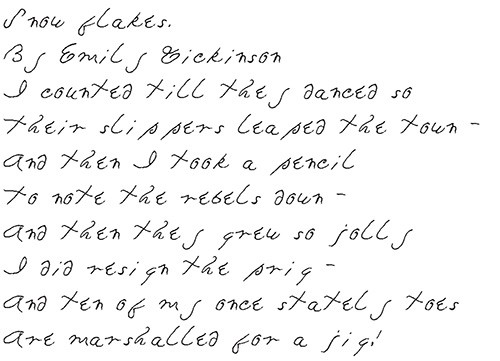 Snow flakes.
By Emily Dickinson
I counted till they danced so
their slippers leaped the town -
And then I took a pencil
to note the rebels down -
And then they grew so jolly
I did resign the prig -
And ten of my once stately toes
Are marshalled for a jig!